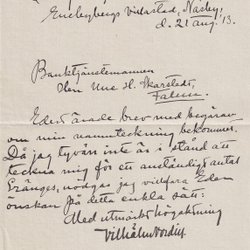 Encleybergs Villastad, Näsby,
d. 21 aug. '13.
Banktjänstemannen
Herr Une H. Skarstedt,
Falun.
Edert ärade brev med begäran
om min namnteckning bekommet.
Då jag tyvärr inte är i stånd att
teckna mig för ett anständigt antal
Franges, nödgas jag villfara Eder
önskan på detta enkla sätt.
Med utmärkt högaktning
Vilhälm Nordin